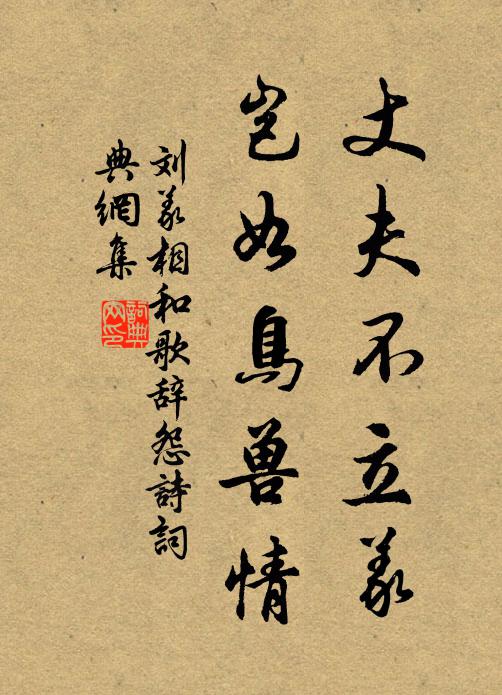 丈夫不立義
岂如鳥兽情
刘義相和歌辞怨詩詞
典網集
詞典
网印